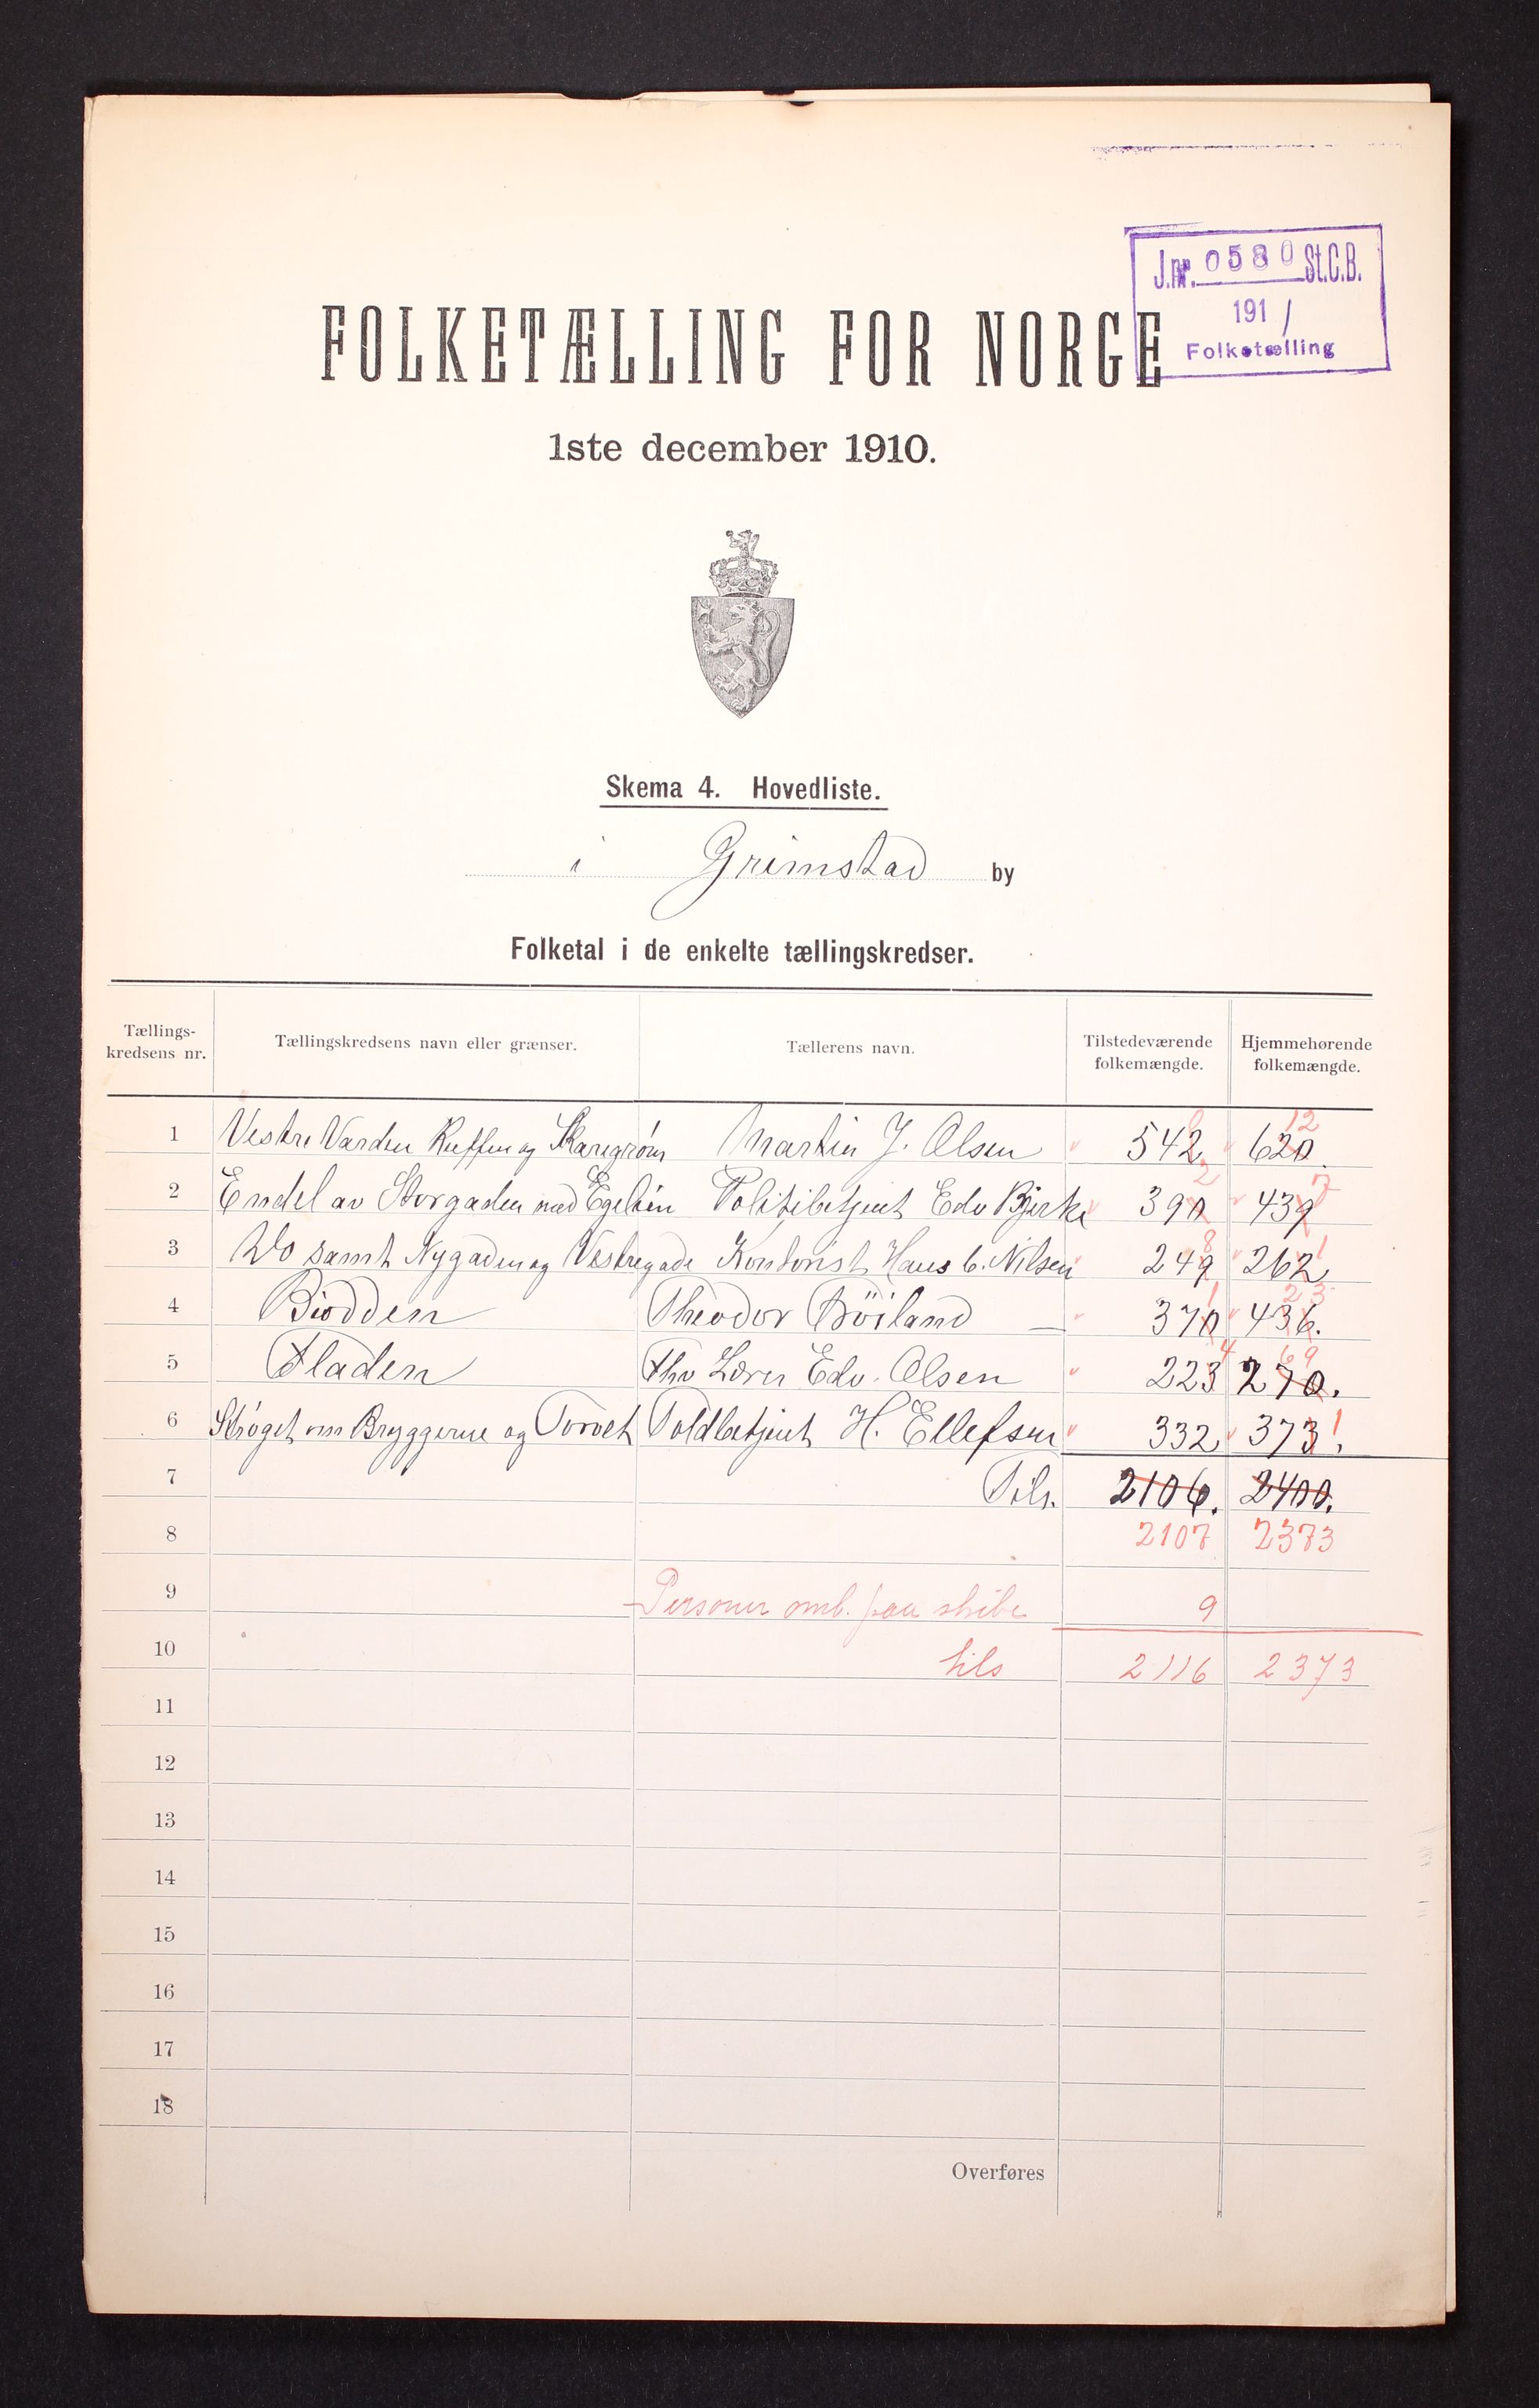 J.nr. 0580 St.C.B.
191 /
Folketælling
FOLKETÆLLING FOR NORGE
1ste december 1910.
Skema 4. Hovedliste.
i Grimstad by
Folketal i de enkelte tællingskredser.
Tællings-kredsens nr. Tællingskredsens navn eller grænser. Tællerens navn. Tilstedeværende folkemængde. Hjemmehørende folkemængde.
1 Vestre Varden og Martin J. Olsen 542 620 12
2 Endel av Storgaden med Politibetjent Edv Bjerke 390 2 439 7
3 Do samt Nygaden og Vestregade Kontorist Hans C. Nilsen 249 8 262 1
4 Biodden Theodor Böiland 370 1 436. 23
5 Fladen Thv Lærer Edv. Olsen 223 4 270. 69
6 Strøget om Bryggerne og Torvet Toldbetjent H. Ellefsen 332 373. 1
7 Tils. 2106. 2400.
8 2107 2373
9 Personer omb. paa skibe 9
10 tils 2116 2373
11
12
13
14
15
16
17
18
Overføres